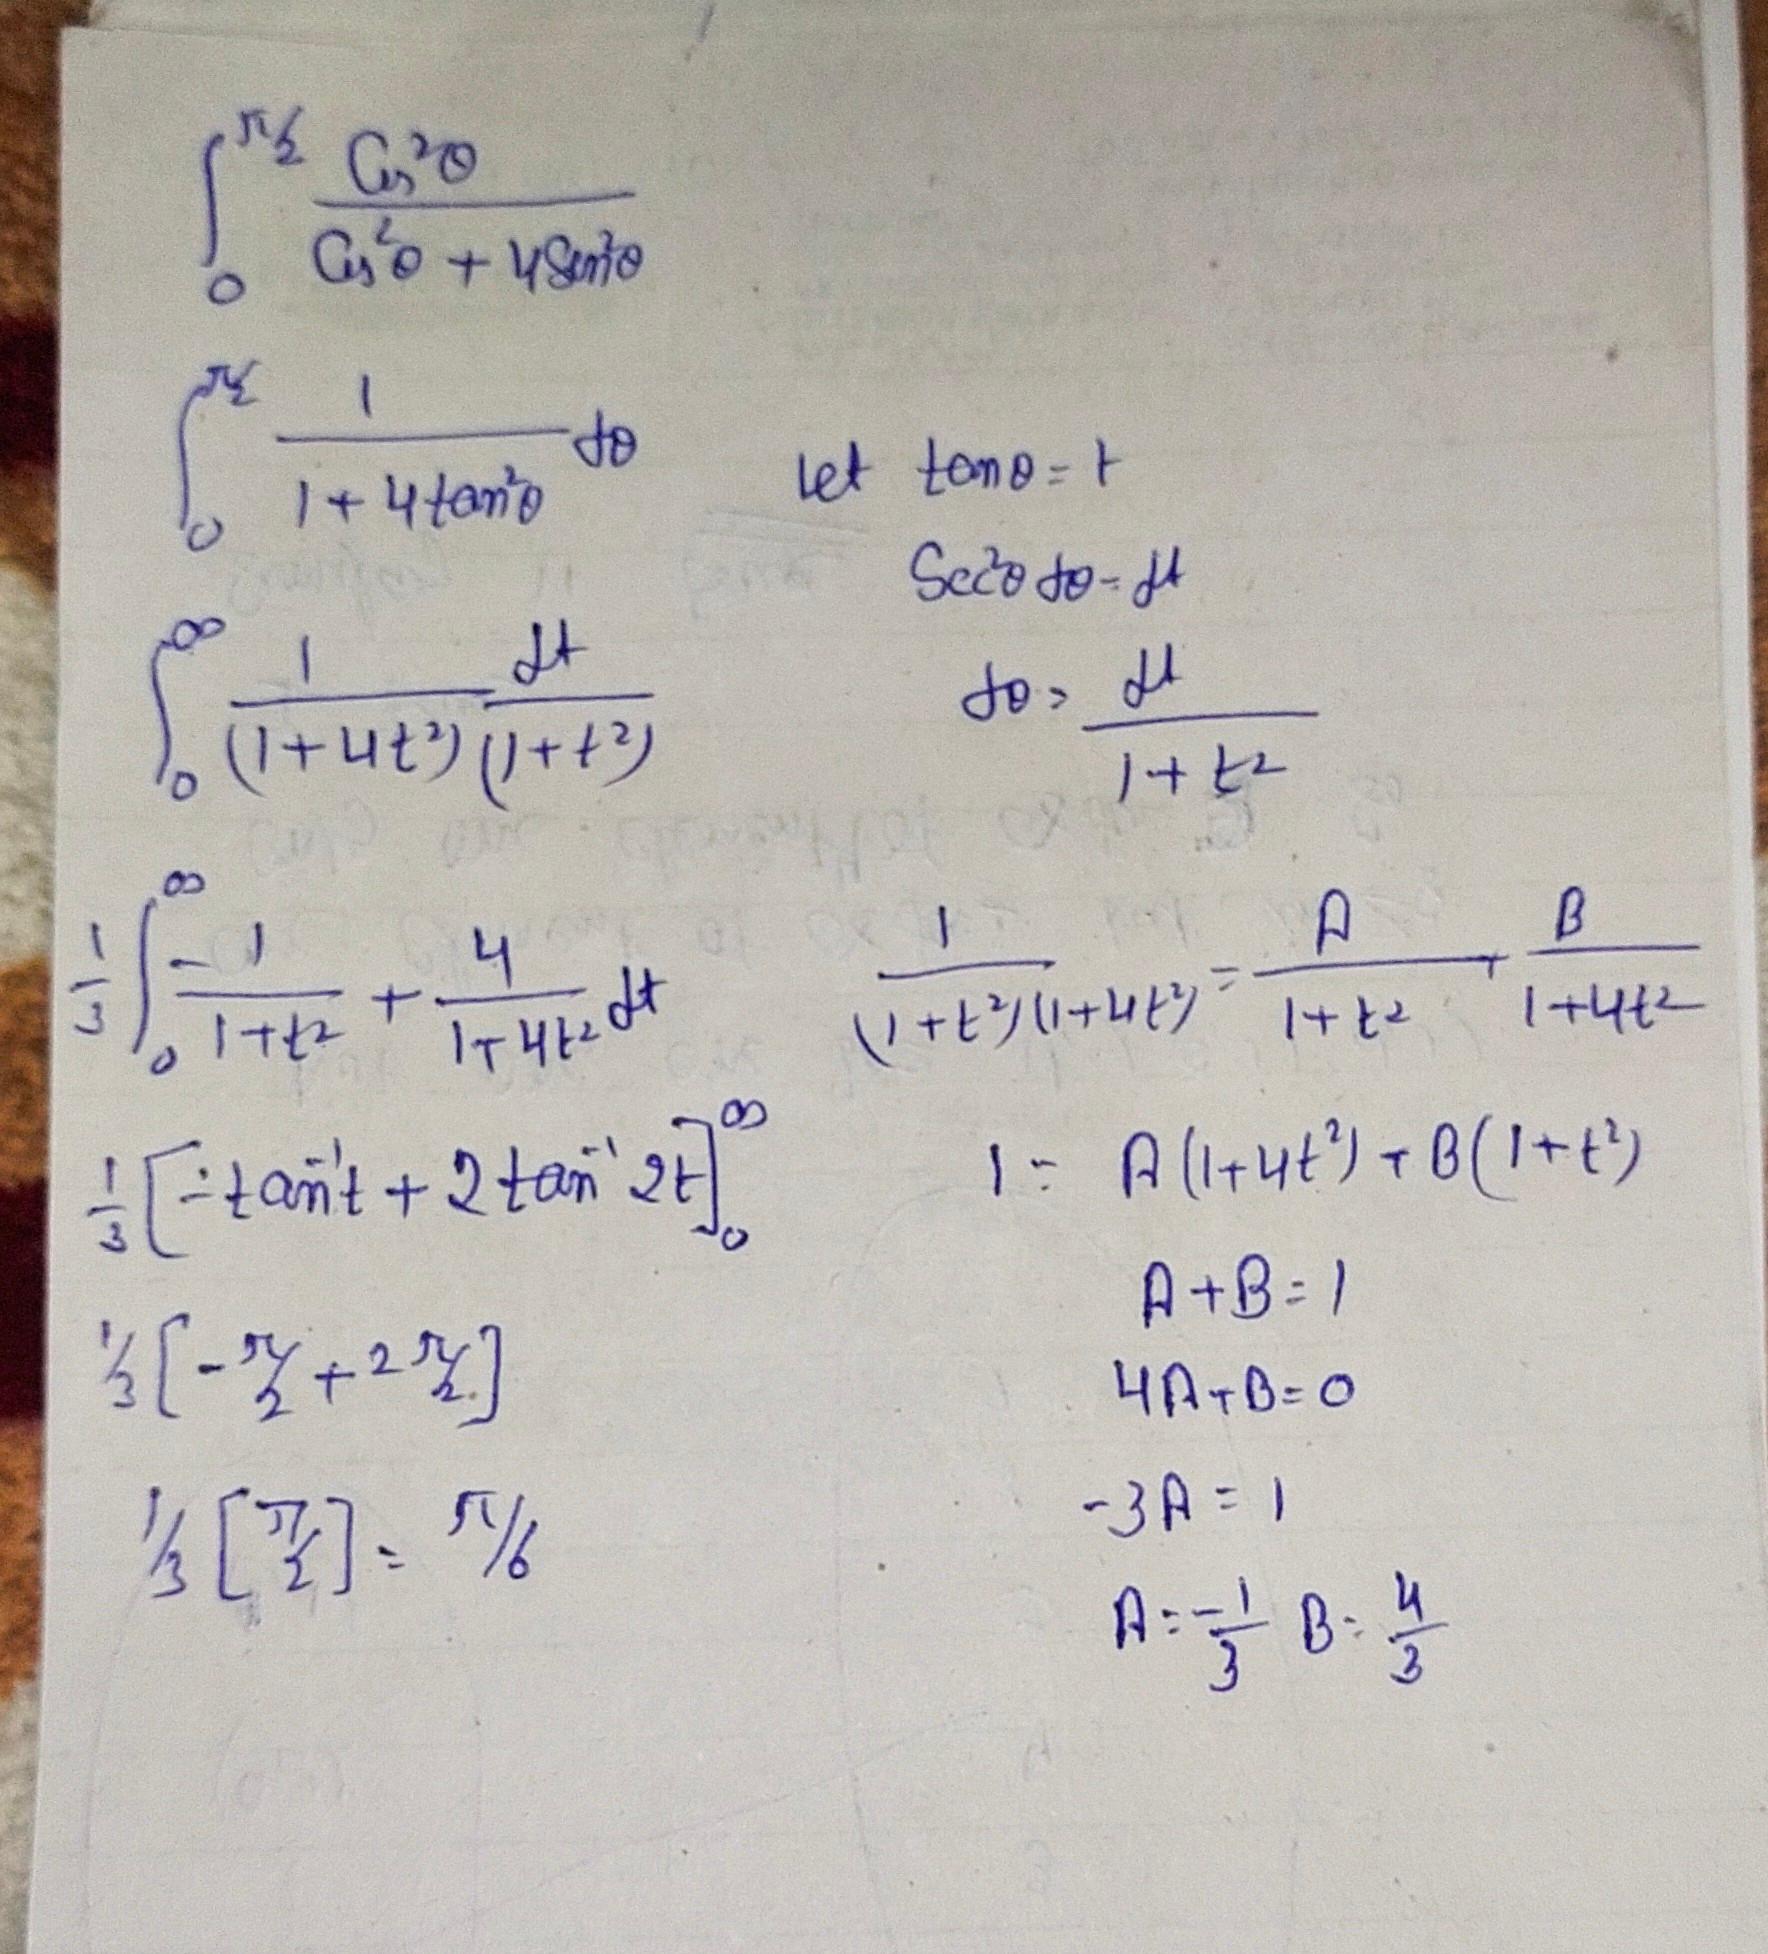 ∫₀^{π/2} Cos²θ / (Cos²θ + 4Sin²θ)
∫₀^{π/2} 1 / (1 + 4tan²θ) dθ
Let tanθ = t
Sec²θ dθ = dt
∫₀^∞ 1 / (1+4t²) dt / (1+t²)
dθ = dt / (1 + t²)
1/3 ∫₀^∞ -1 / (1+t²) + 4 / (1+4t²) dt
1 / ((1+t²)(1+4t²)) = A / (1+t²) + B / (1+4t²)
1/3 [-tan⁻¹t + 2tan⁻¹2t]₀^∞
1 = A(1+4t²) + B(1+t²)
A+B = 1
1/3 [-π/2 + 2 π/2]
4A+B = 0
-3A = 1
1/3 [π/2] = π/6
A = -1/3 B = 4/3